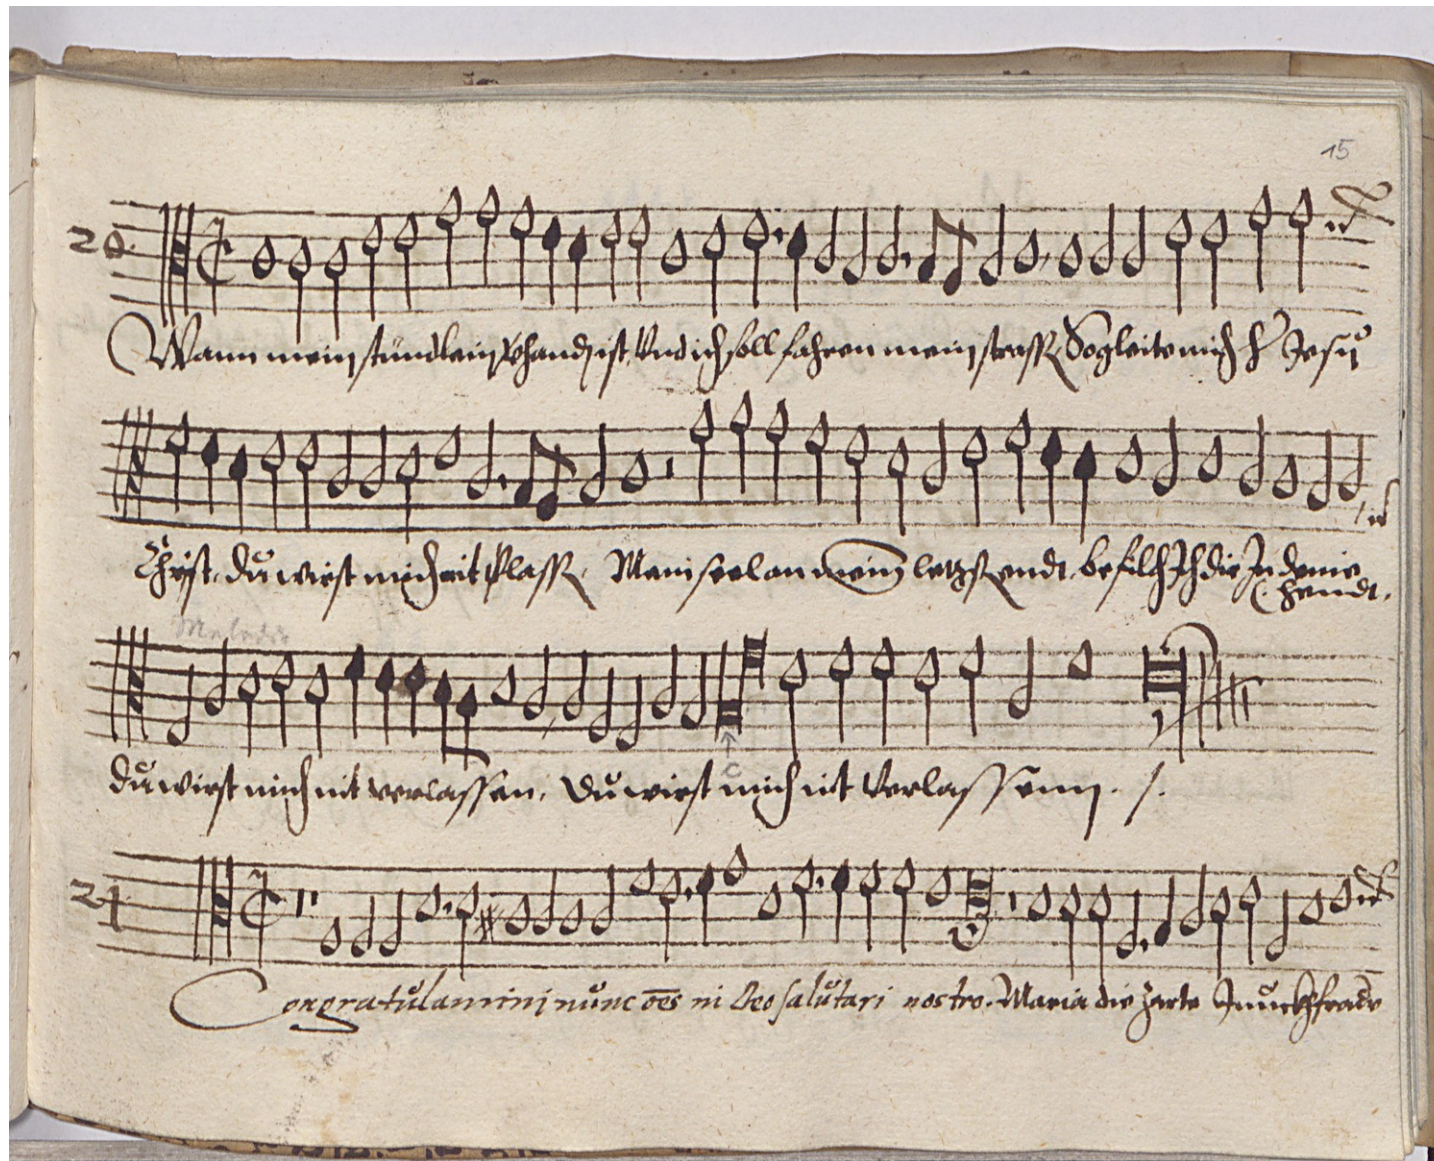 15
20.
Wann mein stündlein vhandn ist, Vnd ich soll fahren mein strass So gleite mich Jesu
Christ, du wirst mich nit Mein seel an mein letzsten endt, befilch Ich dir In deine
hendt.
Melodie
du wirst mich nit verlassen, Du wirst mich nit Verlassenn.
c
21
Congratulamini nunc oēs in Deo salutari nostro. Maria die zarte